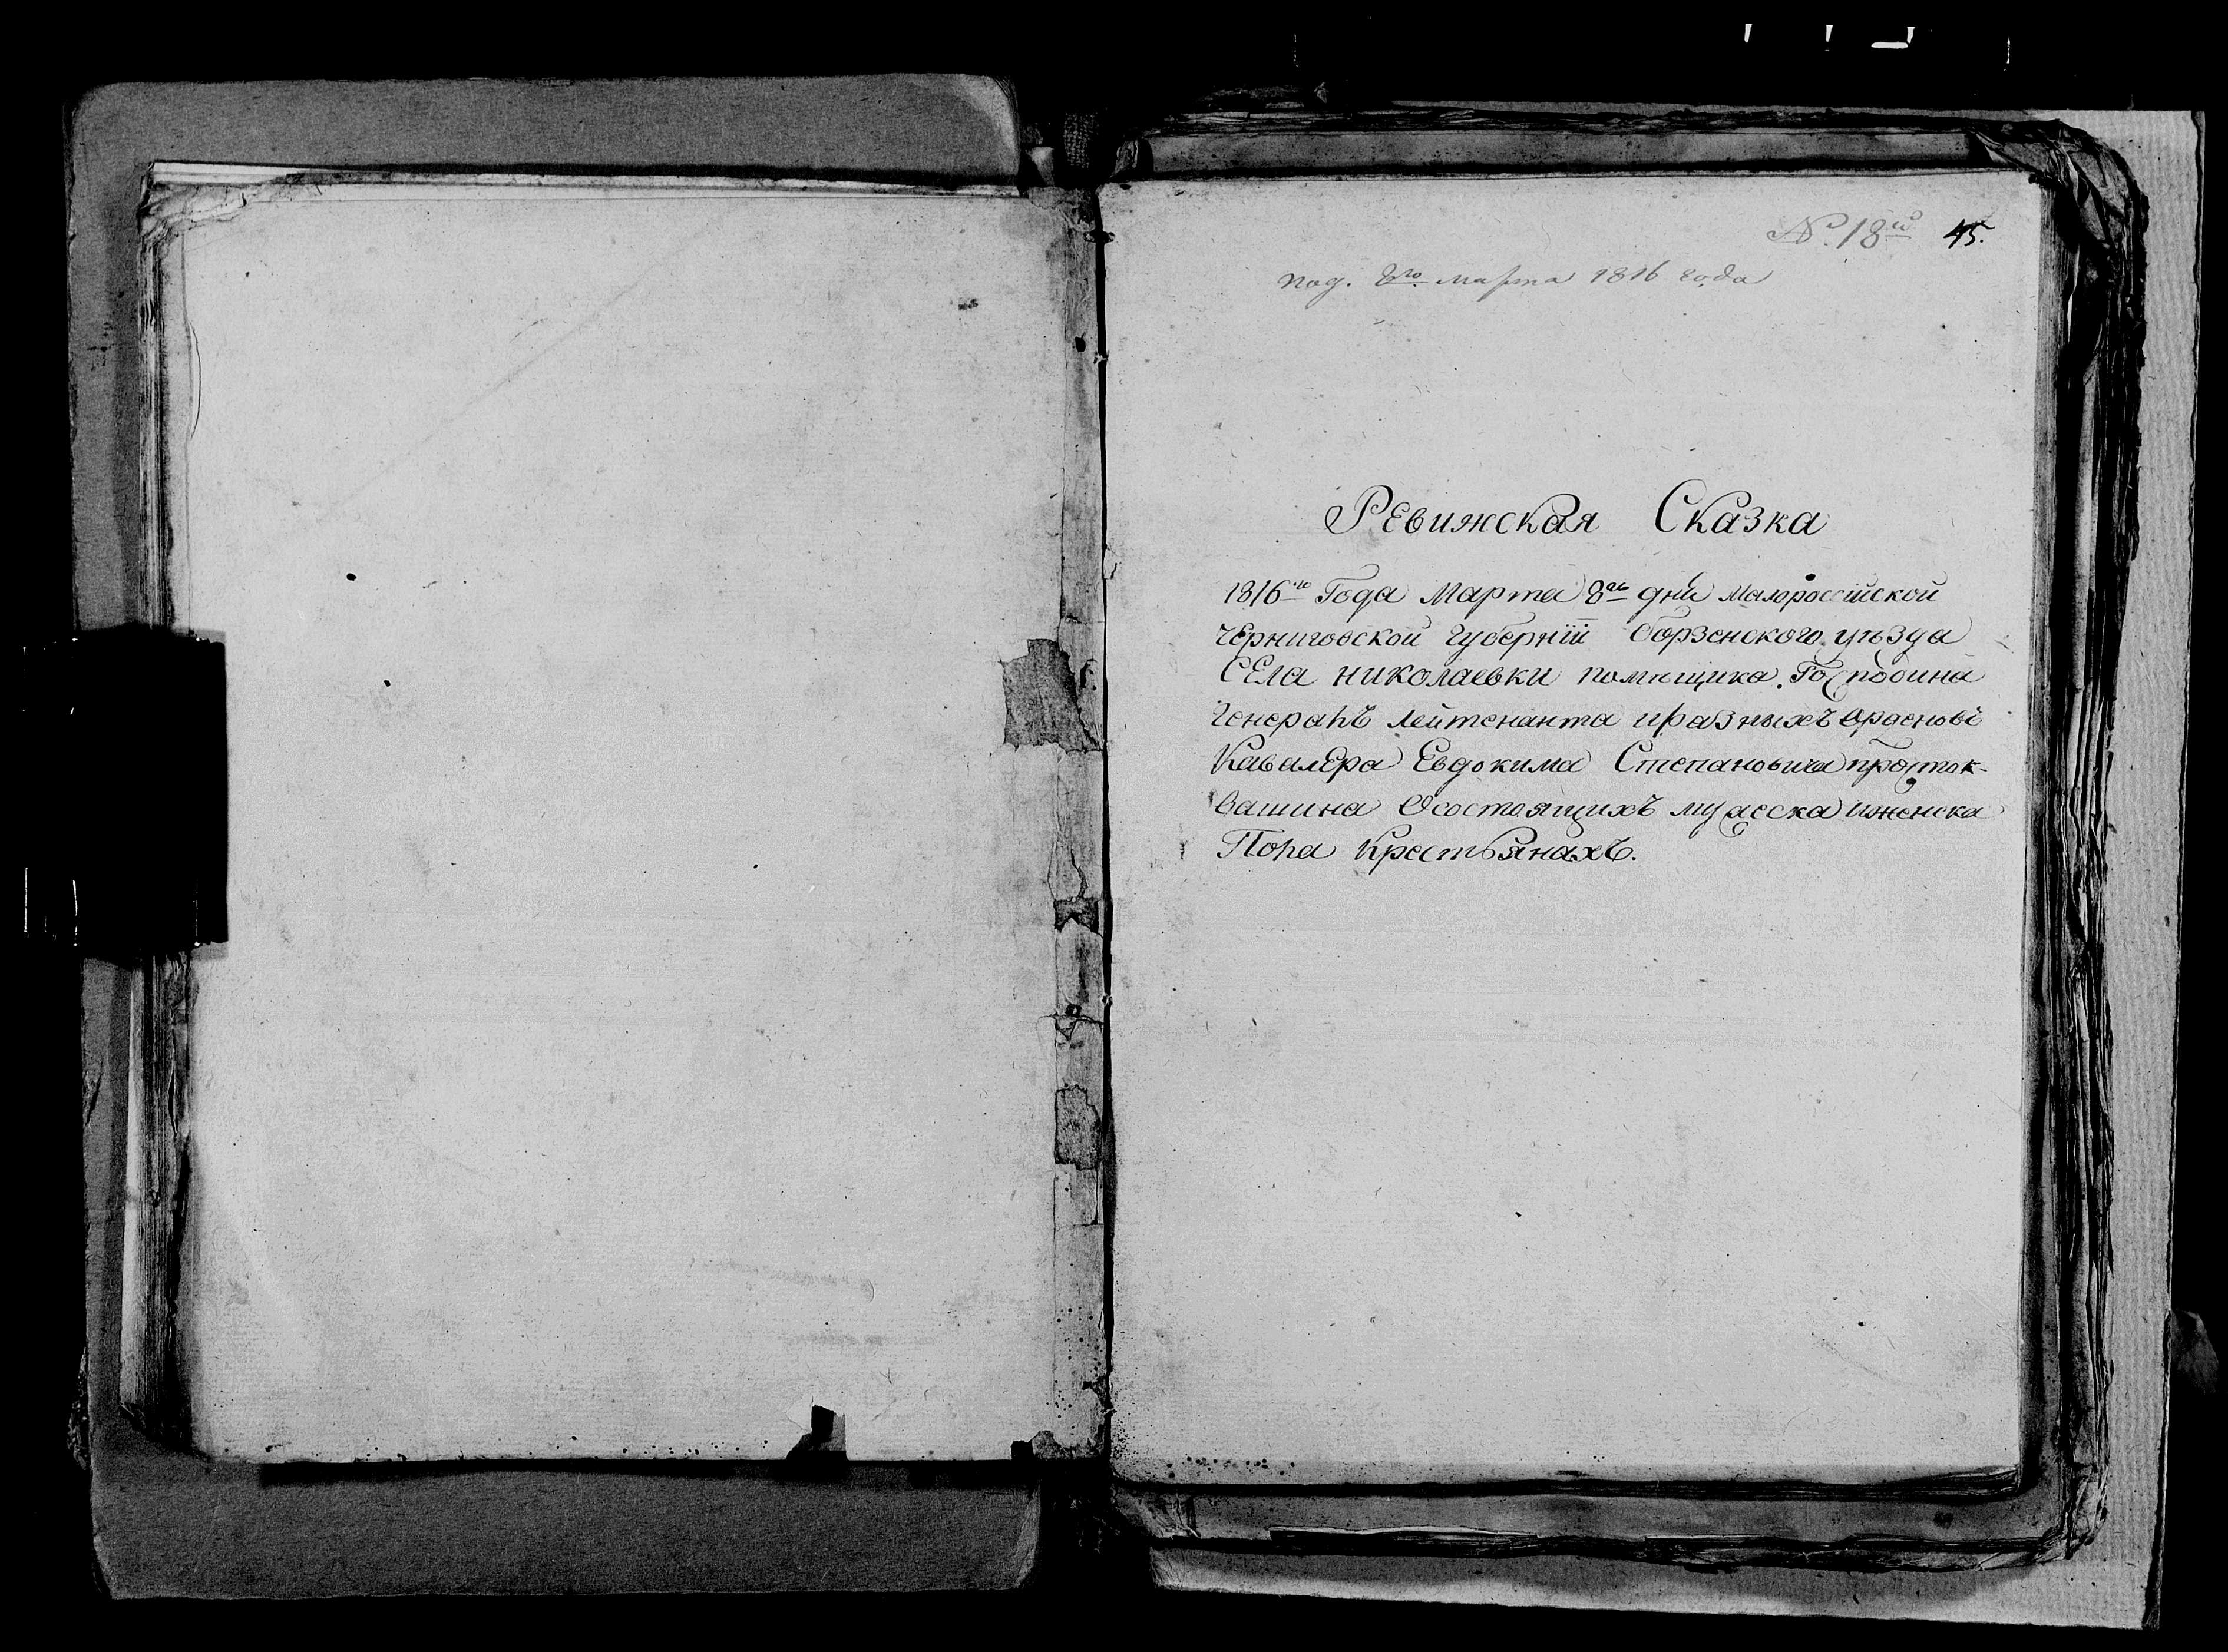 № 18й 45.
под. 8го марта 1816 года
Ревижская Сказка
1816го Года Марта 8го дня Малоросийской
черниговской губернïи борзенского уѣзда
Села николаевки помѣщика. Господина
Генералъ лейтенанта иразныхъ Орденовъ
Кавалера Евдокима Степановича просток-
вашина Осостоящихъ муЖеска иженска
Пола Крестьянахъ.